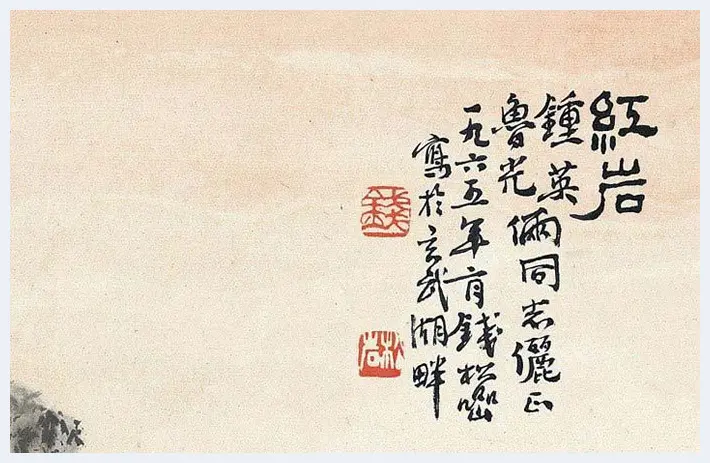 紅岩
鍾英
魯光倆同志儷正
一九六五年錢松喦
寫於玄武湖畔
錢
松岩